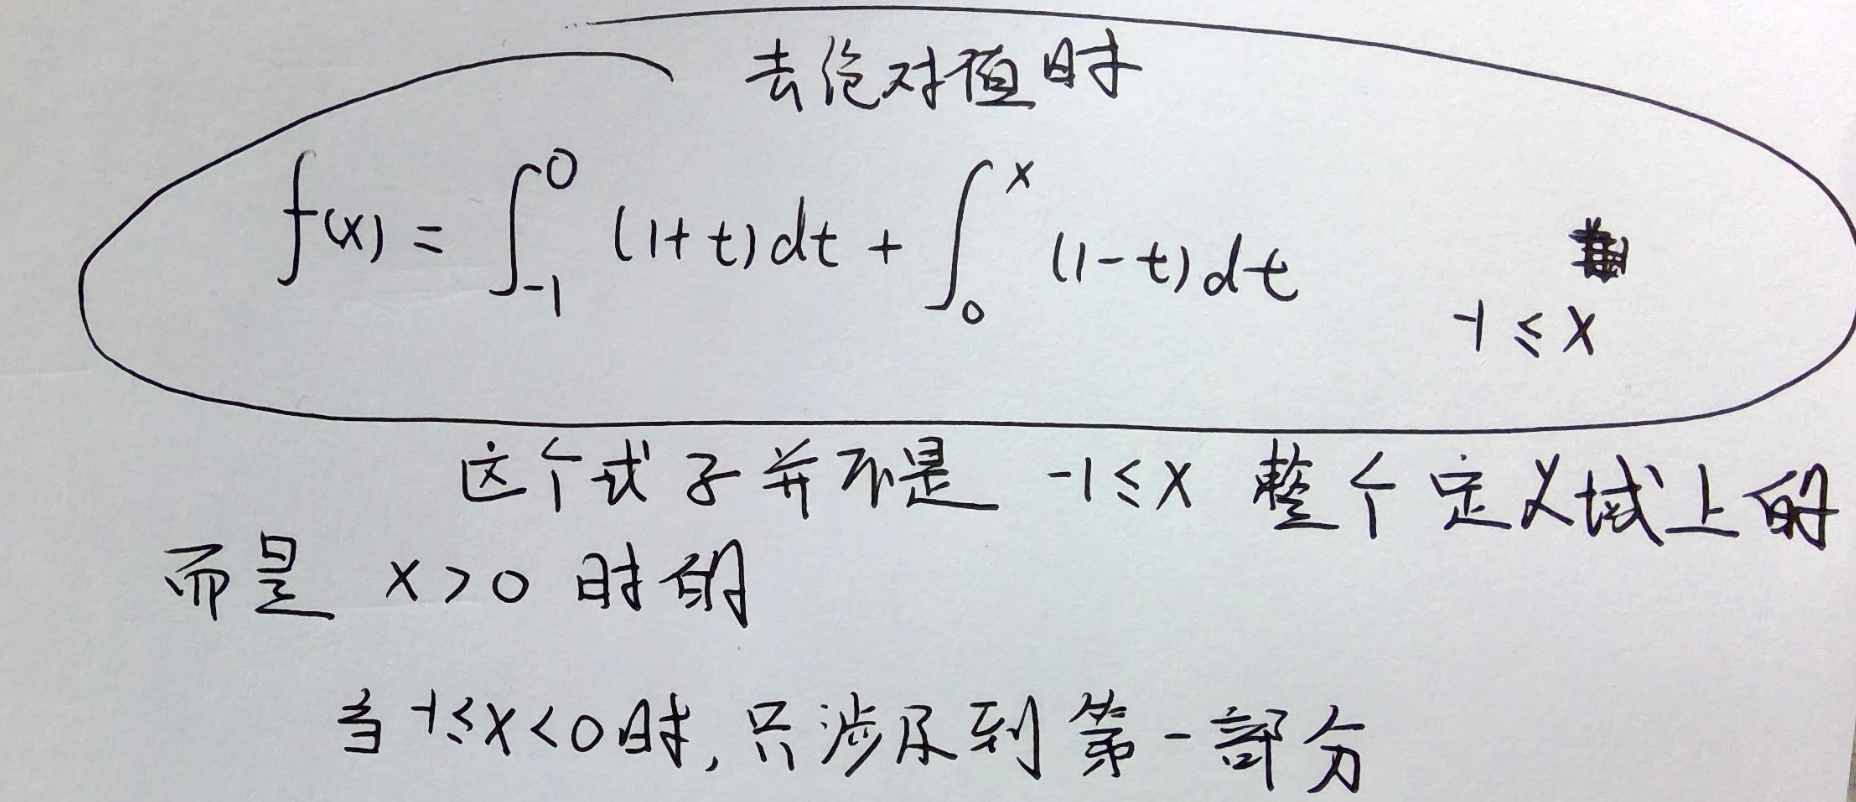 去绝对值时
f(x) = ∫_{-1}^{0} (1+t)dt + ∫_{0}^{x} (1-t)dt
-1 ≤ x
这个式子并不是 -1≤x 整个定义域上的
而是 x>0 时的
当 -1≤x<0时,只涉及到第一部分